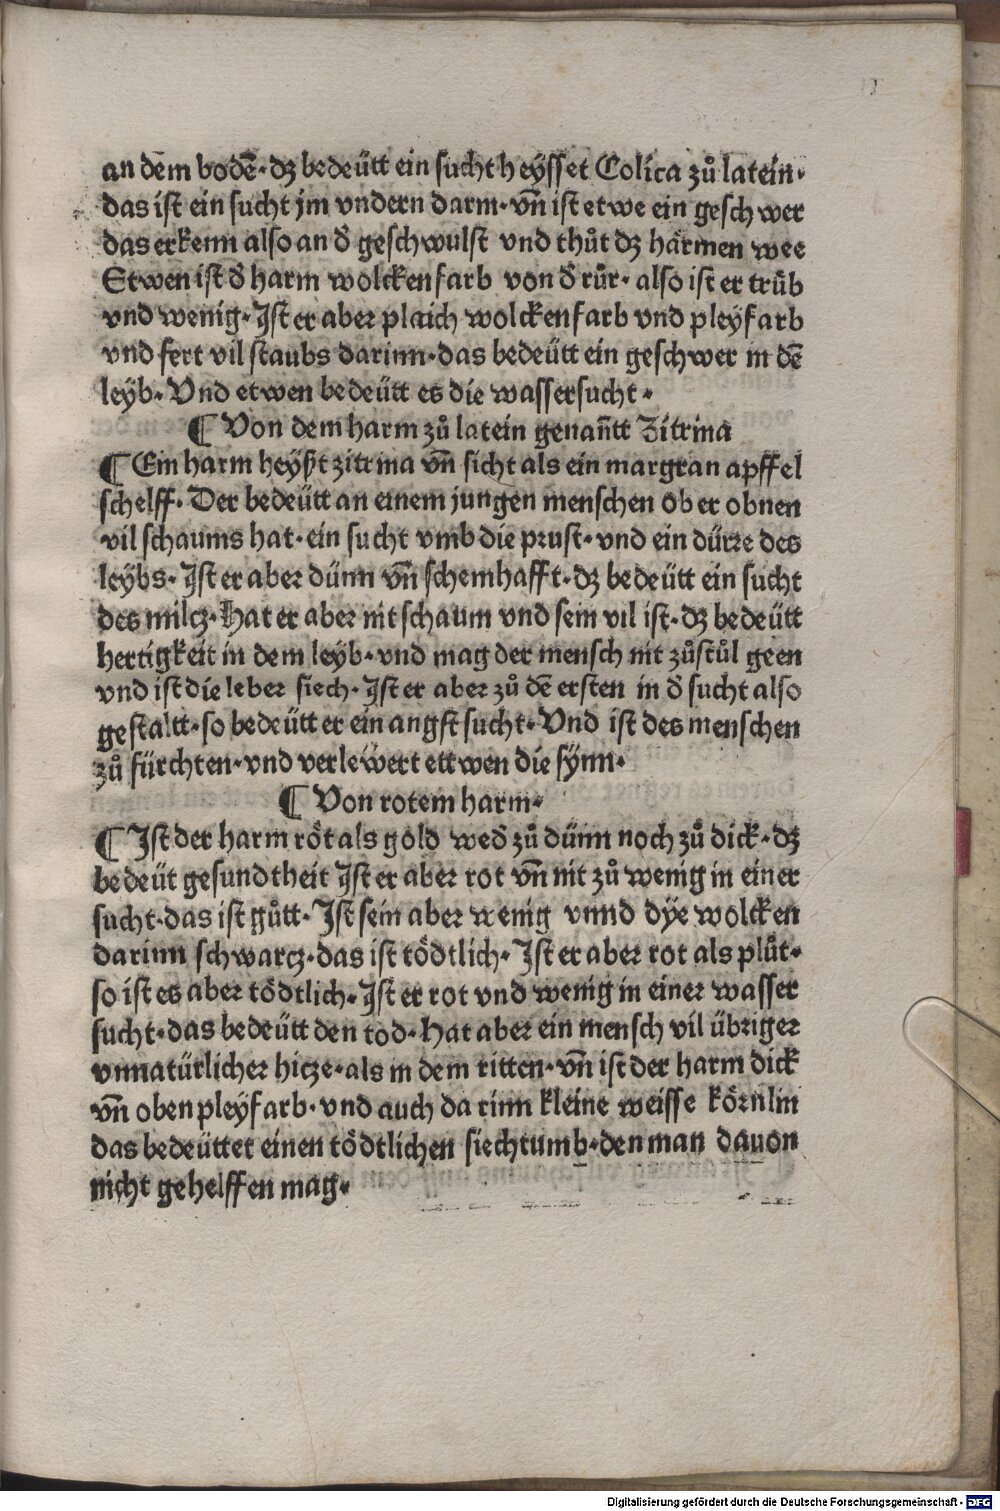 an dem bodē·dʒ bedeütt ein sucht heysset Colica zů latein·
das ist ein sucht jm vndern darm·vn̄ ist etwe ein geschwer
das erkenn also an d̄ geschwulst vnd thůt dʒ härmen wee
Etwen ist d̄ harm wolckenfarb von d̄ růr·also ist er trüb
vnd wenig·Ist er aber plaich wolckenfarb vnd pleyfarb
vnd fert vil staubs darinn·das bedeütt ein geschwer in dē
leyb·Vnd etwen bedeütt es die wassersucht·
¶ Von dem harm zů latein genan̄tt Zitrina
¶ Ein harm heyßt zitrina vn̄ sicht als ein margran apffel
schelff·Der bedeütt an einem jungen menschen ob er obnen
vil schaums hat·ein sucht vmb die prust·vnd ein dürre des
leybs·Ist er aber dünn vn̄ schemhafft·dʒ bedeütt ein sucht
des milcz·Hat er aber nit schaum vnd sein vil ist·dʒ bedeütt
hertigkeit in dem leyb·vnd mag der mensch nit zůstůl geen
vnd ist die leber siech·Ist er aber zů dē ersten in d̄ sucht also
gestaltt·so bedeütt er ein angstsucht·Vnd ist des menschen
zů fürchten·vnd verlewert ettwen die synn·
¶ Von rotem harm·
¶ Ist der harm röt als gold wed̄ zů dünn noch zů dick·dʒ
bedeüt gesundtheit Ist er aber rot vn̄ nit zů wenig in einer
sucht·das ist gůtt·Ist sein aber wenig vnnd dye wolcken
darinn schwarcz·das ist tödtlich·Ist er aber rot als plůt·
so ist es aber tödtlich·Ist er rot vnd wenig in einer wasser
sucht·das bedeütt den tod·Hat aber ein mensch vil übriger
vnnatürlicher hicze·als in dem ritten·vn̄ ist der harm dick
vn̄ oben pleyfarb·vnd auch darinn kleine weisse körnlin
das bedeüttet einen tödtlichen siechtumb·den man dauon
nicht gehelffen mag·
Digitalisierung gefördert durch die Deutsche Forschungsgemeinschaft - DFG